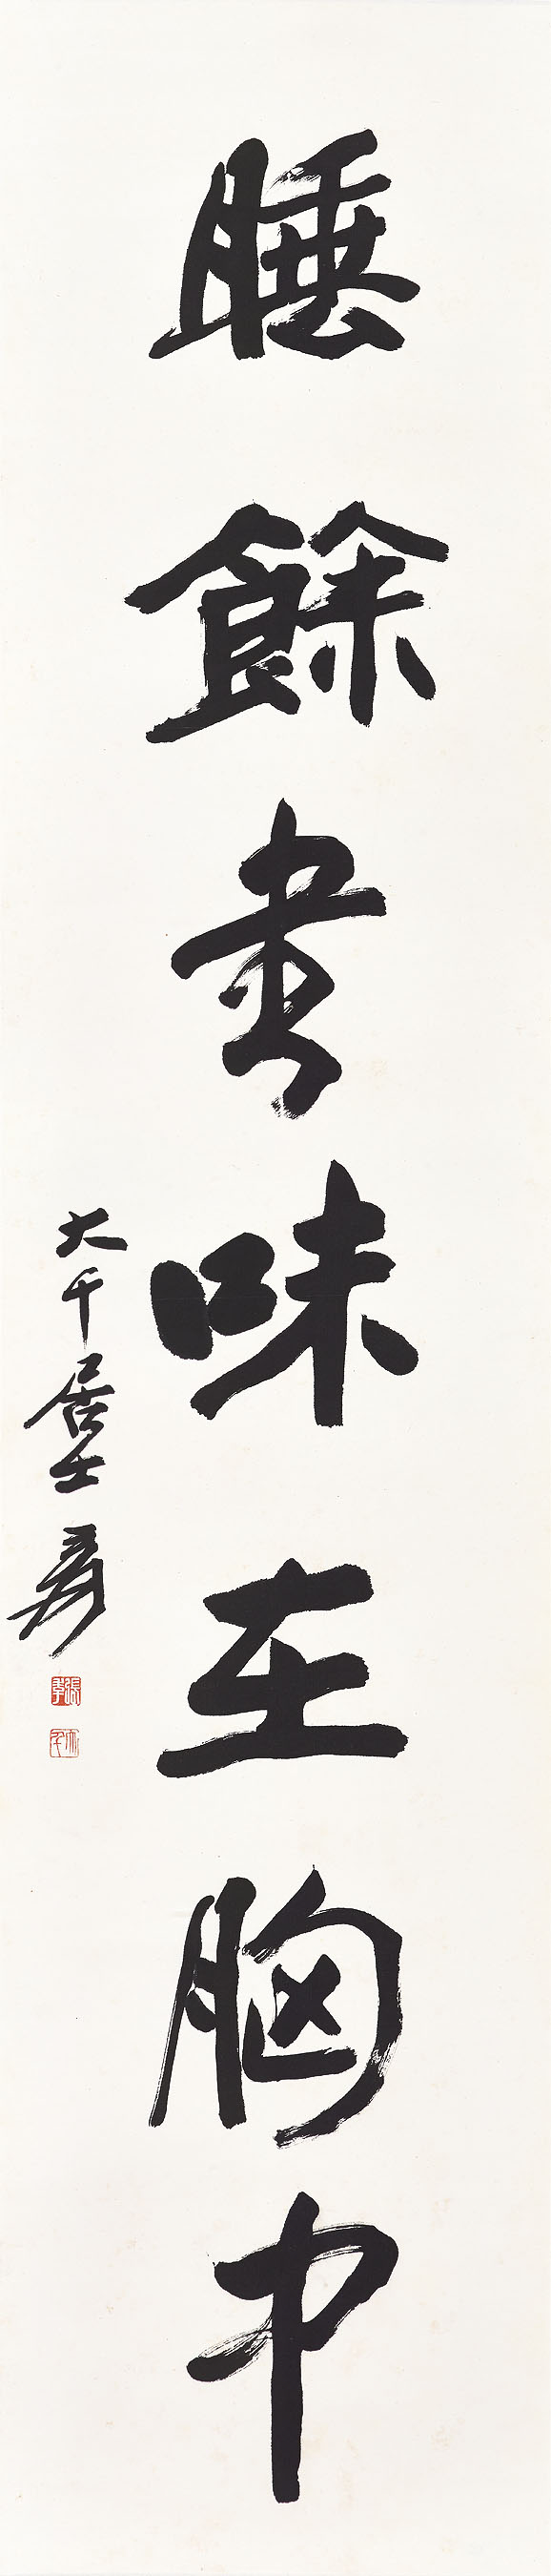 睡餘書味在胸中
大千居士爰
張爰
大千